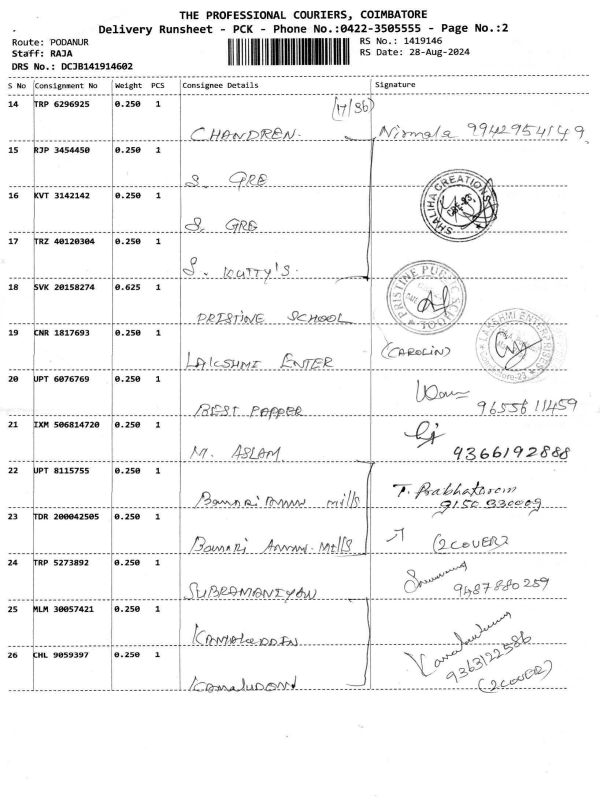 THE PROFESSIONAL COURIERS, COIMBATORE
Delivery Runsheet - PCK - Phone No.:0422-3505555 - Page No.:2
Route: PODANUR RS No.: 1419146
Staff: RAJA RS Date: 28-Aug-2024
DRS No.: DCJB141914602
S No Consignment No Weight PCS Consignee Details Signature
14 TRP 6296925 0.250 1 (17/36)
CHANDREN. Nirmala 9942954149
15 RJP 3454450 0.250 1
S. GRE
16 KVT 3142142 0.250 1 SHALIHA CREATIONS
S. GRE
17 TRZ 40120304 0.250 1
S. KUTTY'S.
18 SVK 20158274 0.625 1 PRISTINE PUBLIC SCHOOL
PRISTINE SCHOOL
19 CNR 1817693 0.250 1 LAKSHMI ENTERPRISES
LAKSHMI ENTER (CAROLIN)
20 UPT 6076769 0.250 1
BEST PAPPER 9655611459
21 IXM 506814720 0.250 1
M. ASLAM 9366192888
22 UPT 8115755 0.250 1 T. Prabhakaran
Bannari Amman Mills 9150930009
23 TDR 200042505 0.250 1
Bannari Amman Mills (2COVER)
24 TRP 5273892 0.250 1
SUBRAMANIYAN 9487880259
25 MLM 30057421 0.250 1
KAMALUDDIN
26 CHL 9059397 0.250 1 9363122586
Kamaludeen (2COVER)